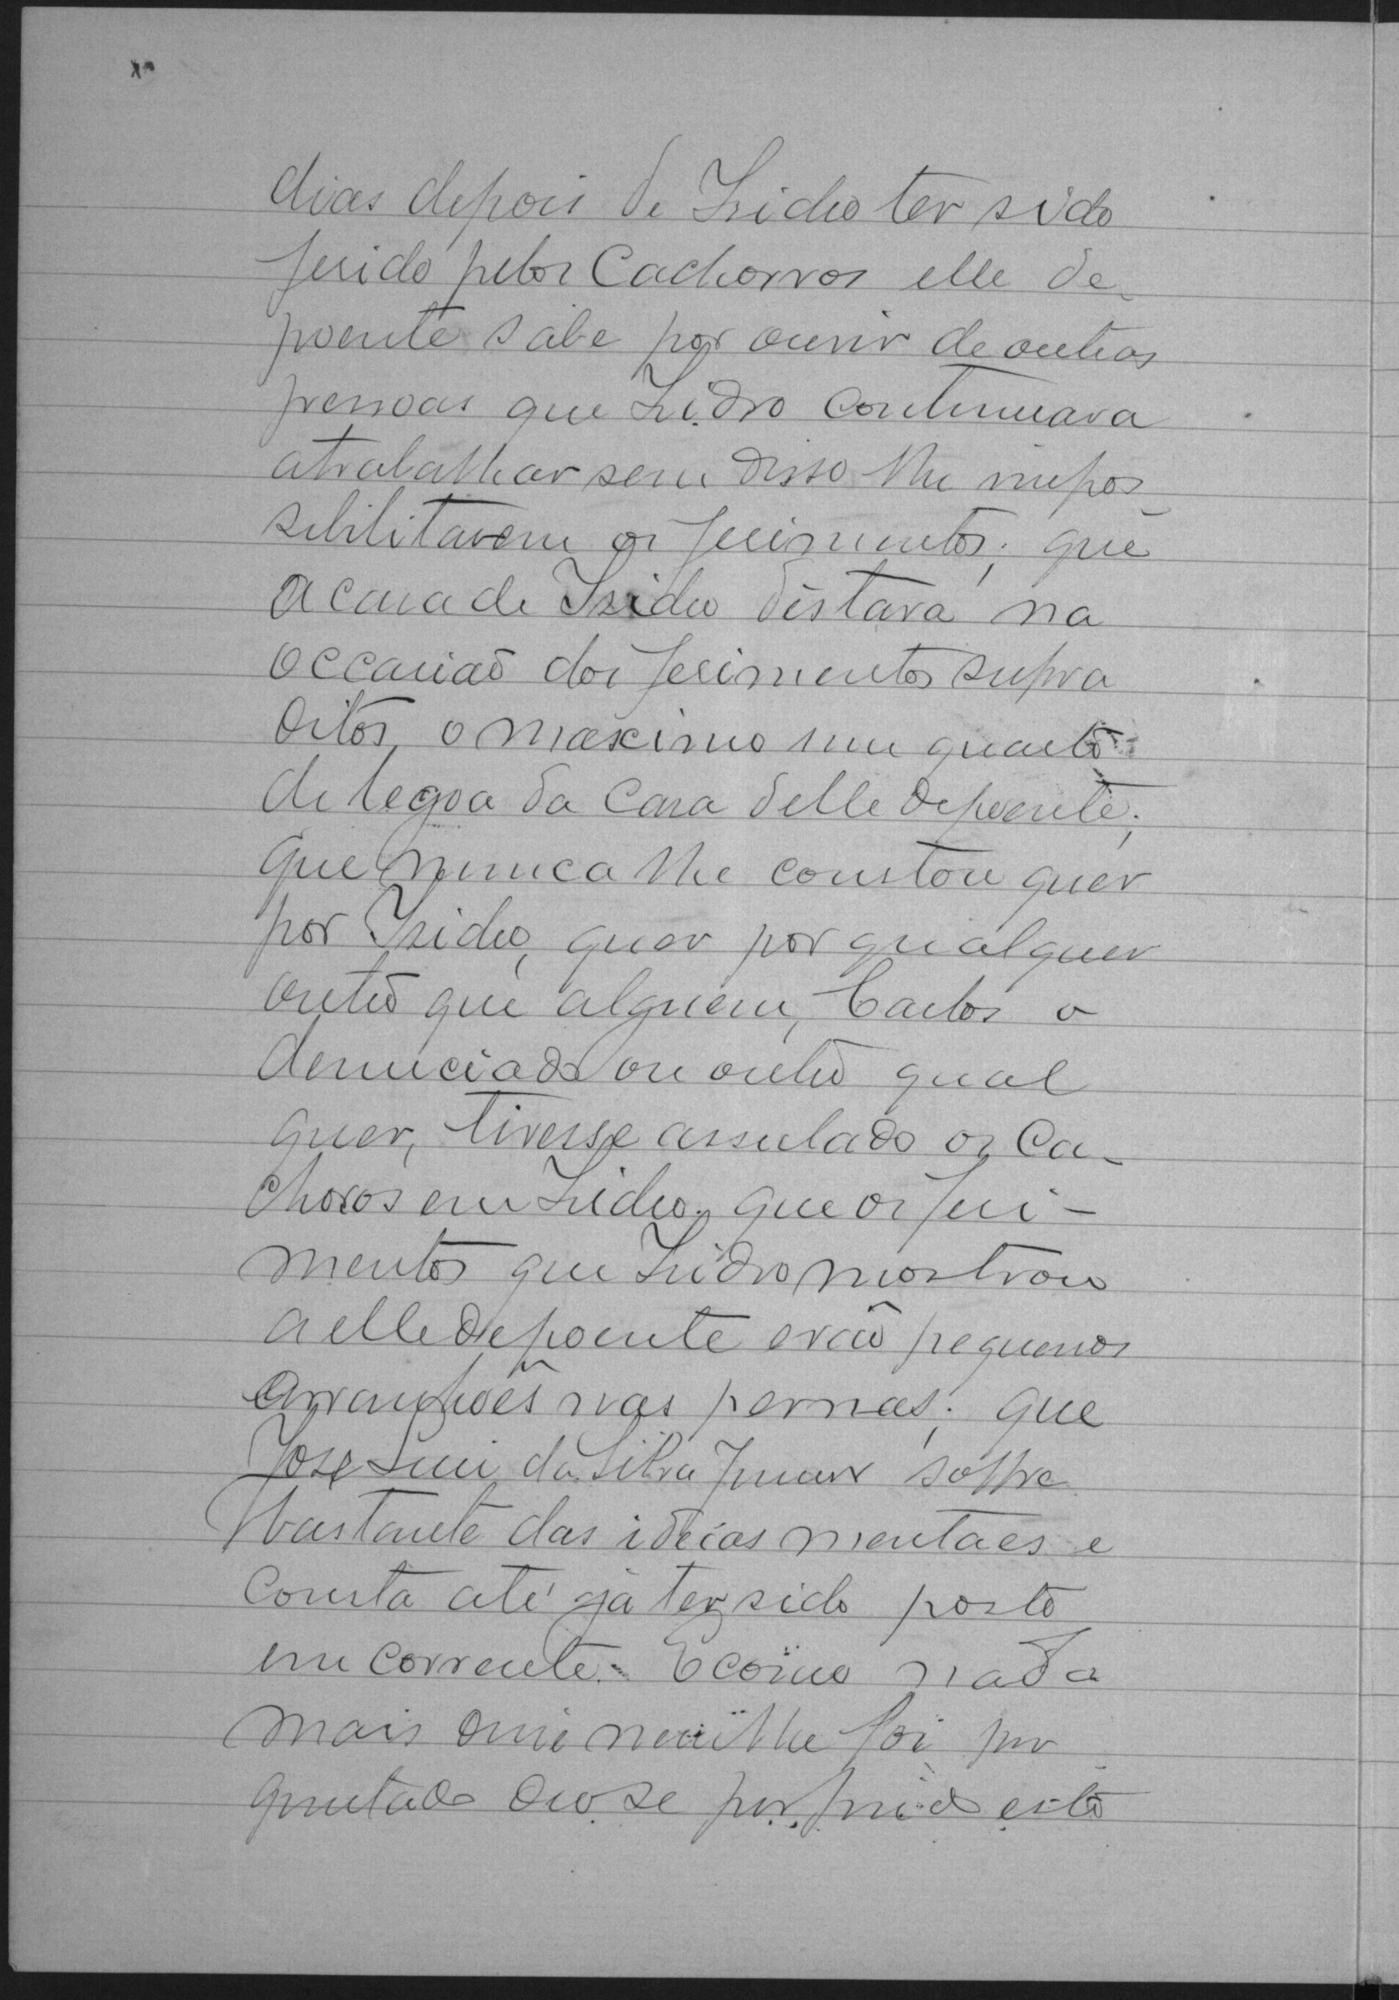 dias depois de Izidro ter sido
ferido pelos Cachorros elle de-
poente sabe por ouvir de outras
pessoas que Izidro continuava
a trabalhar sem disso lhe impos
sibilitarem os ferimentos; que
a casa de Izidro distava na
occasião dos ferimentos supra
ditos, o maximo um quarto
de legoa da casa delle depoente;
que nunca lhe constou quer
por Izidro, quer por qualquer
outro que alguem, Carlos o
denunciado ou outro qual
quer, tivesse assulado os Ca-
choros em Izidro; que os feri-
mentos que Izidro mostrou
a elle depoente erão pequenos
arranhões nas pernas; que
José Luiz da Silva Junior soffre
bastante das ideias mentaes e
consta até já ter sido posto
em corrente. E como nada
mais disse nem lhe foi per
guntado deo se por findo este